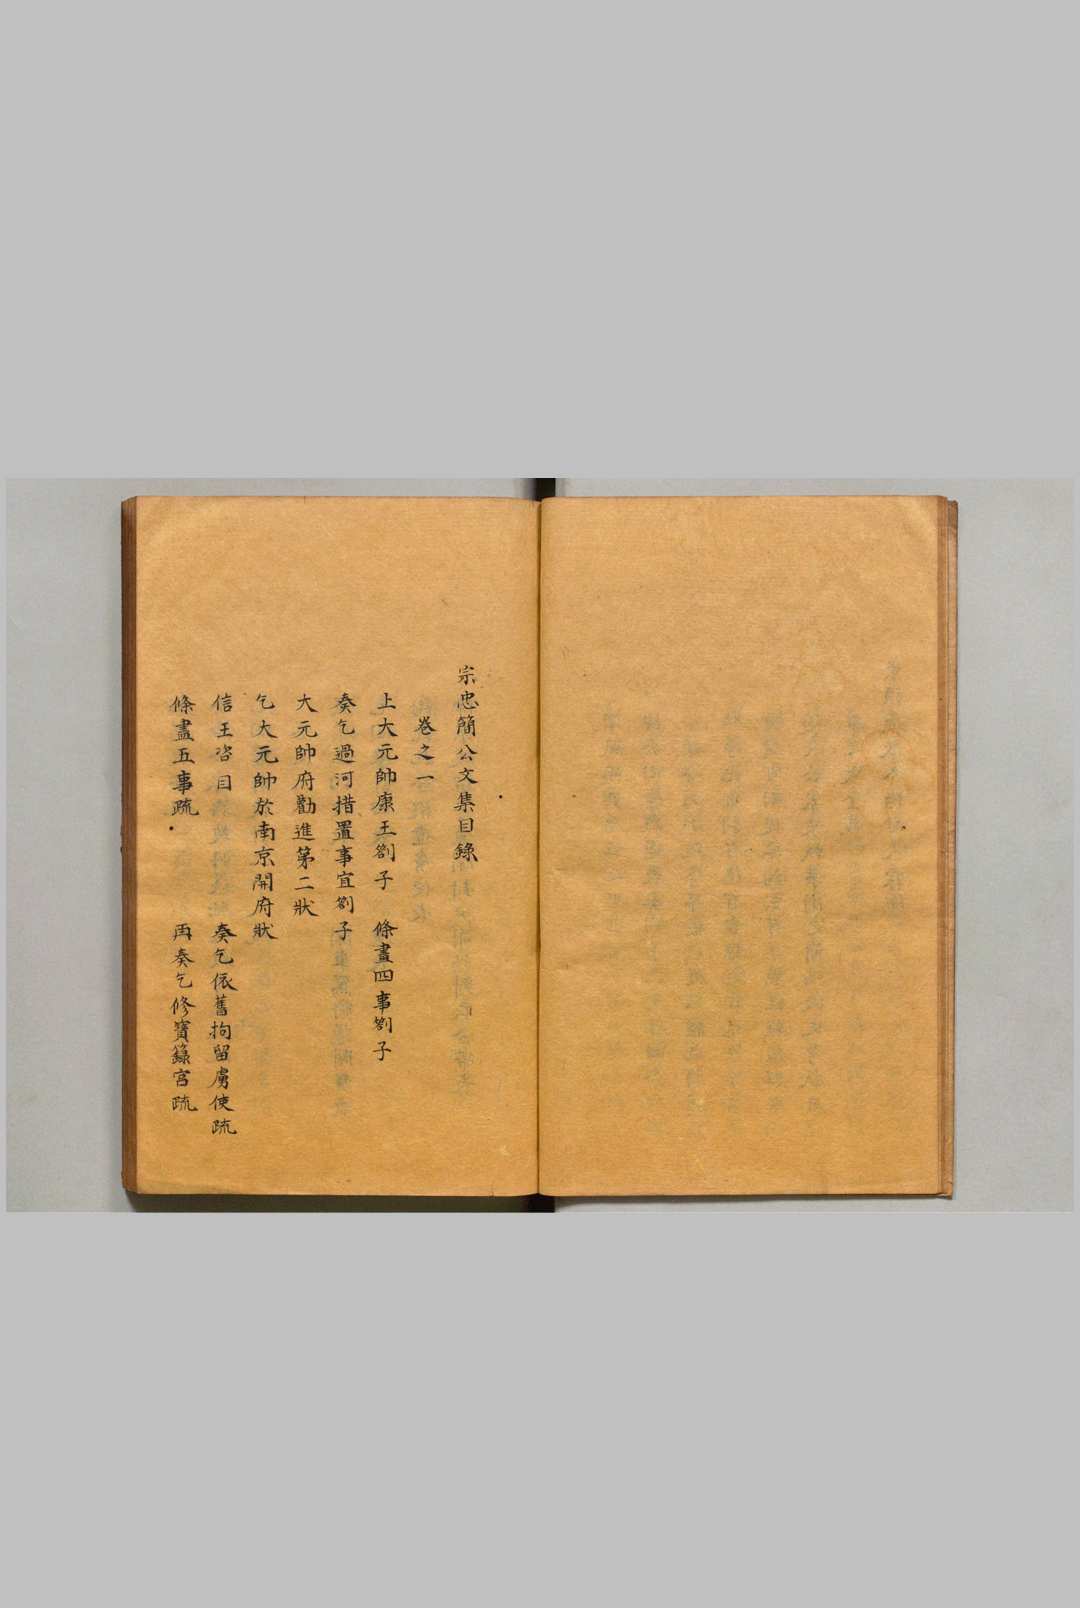 宗忠簡公文集目錄
卷之一
上大元帥康王劄子　條畫四事劄子
奏乞過河措置事宜劄子
大元帥府勸進第二狀
乞大元帥於南京開府狀
信王咨目　奏乞依舊拘留虜使疏
條畫五事疏　再奏乞修寶籙宮疏